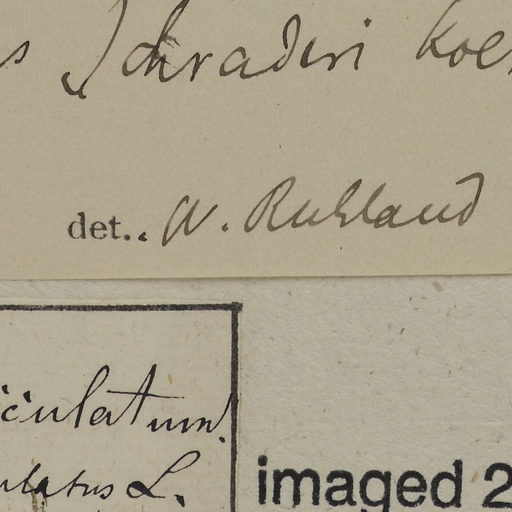 s Schraderi Koe
det. W. Ruhland
iculatum.
ulatus L.
imaged 2